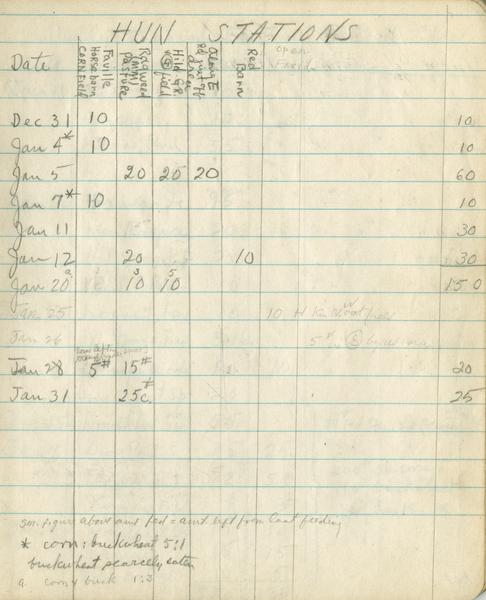 HUN STATIONS
Date
Faville Horsebarn CORNFIELD
Ragweed (MM) Pasture
Hild. G.R. field
along
Red Barn
open
Dec 31 10 10
Jan 4* 10 10
Jan 5 20 20 20 60
Jan 7* 10 10
Jan 11 30
Jan 12 20 10 30
Jan 20 a 3 10 5 10 150
Jan 25 10 H
Jan 26 5
Jan 28 5# 15# 20
Jan 31 25c. # 25
sm. figure above amt fed = amt. left from last feeding
* corn : buckwheat 5:1
buckwheat scarcely eaten
a. corn & buck 1:3